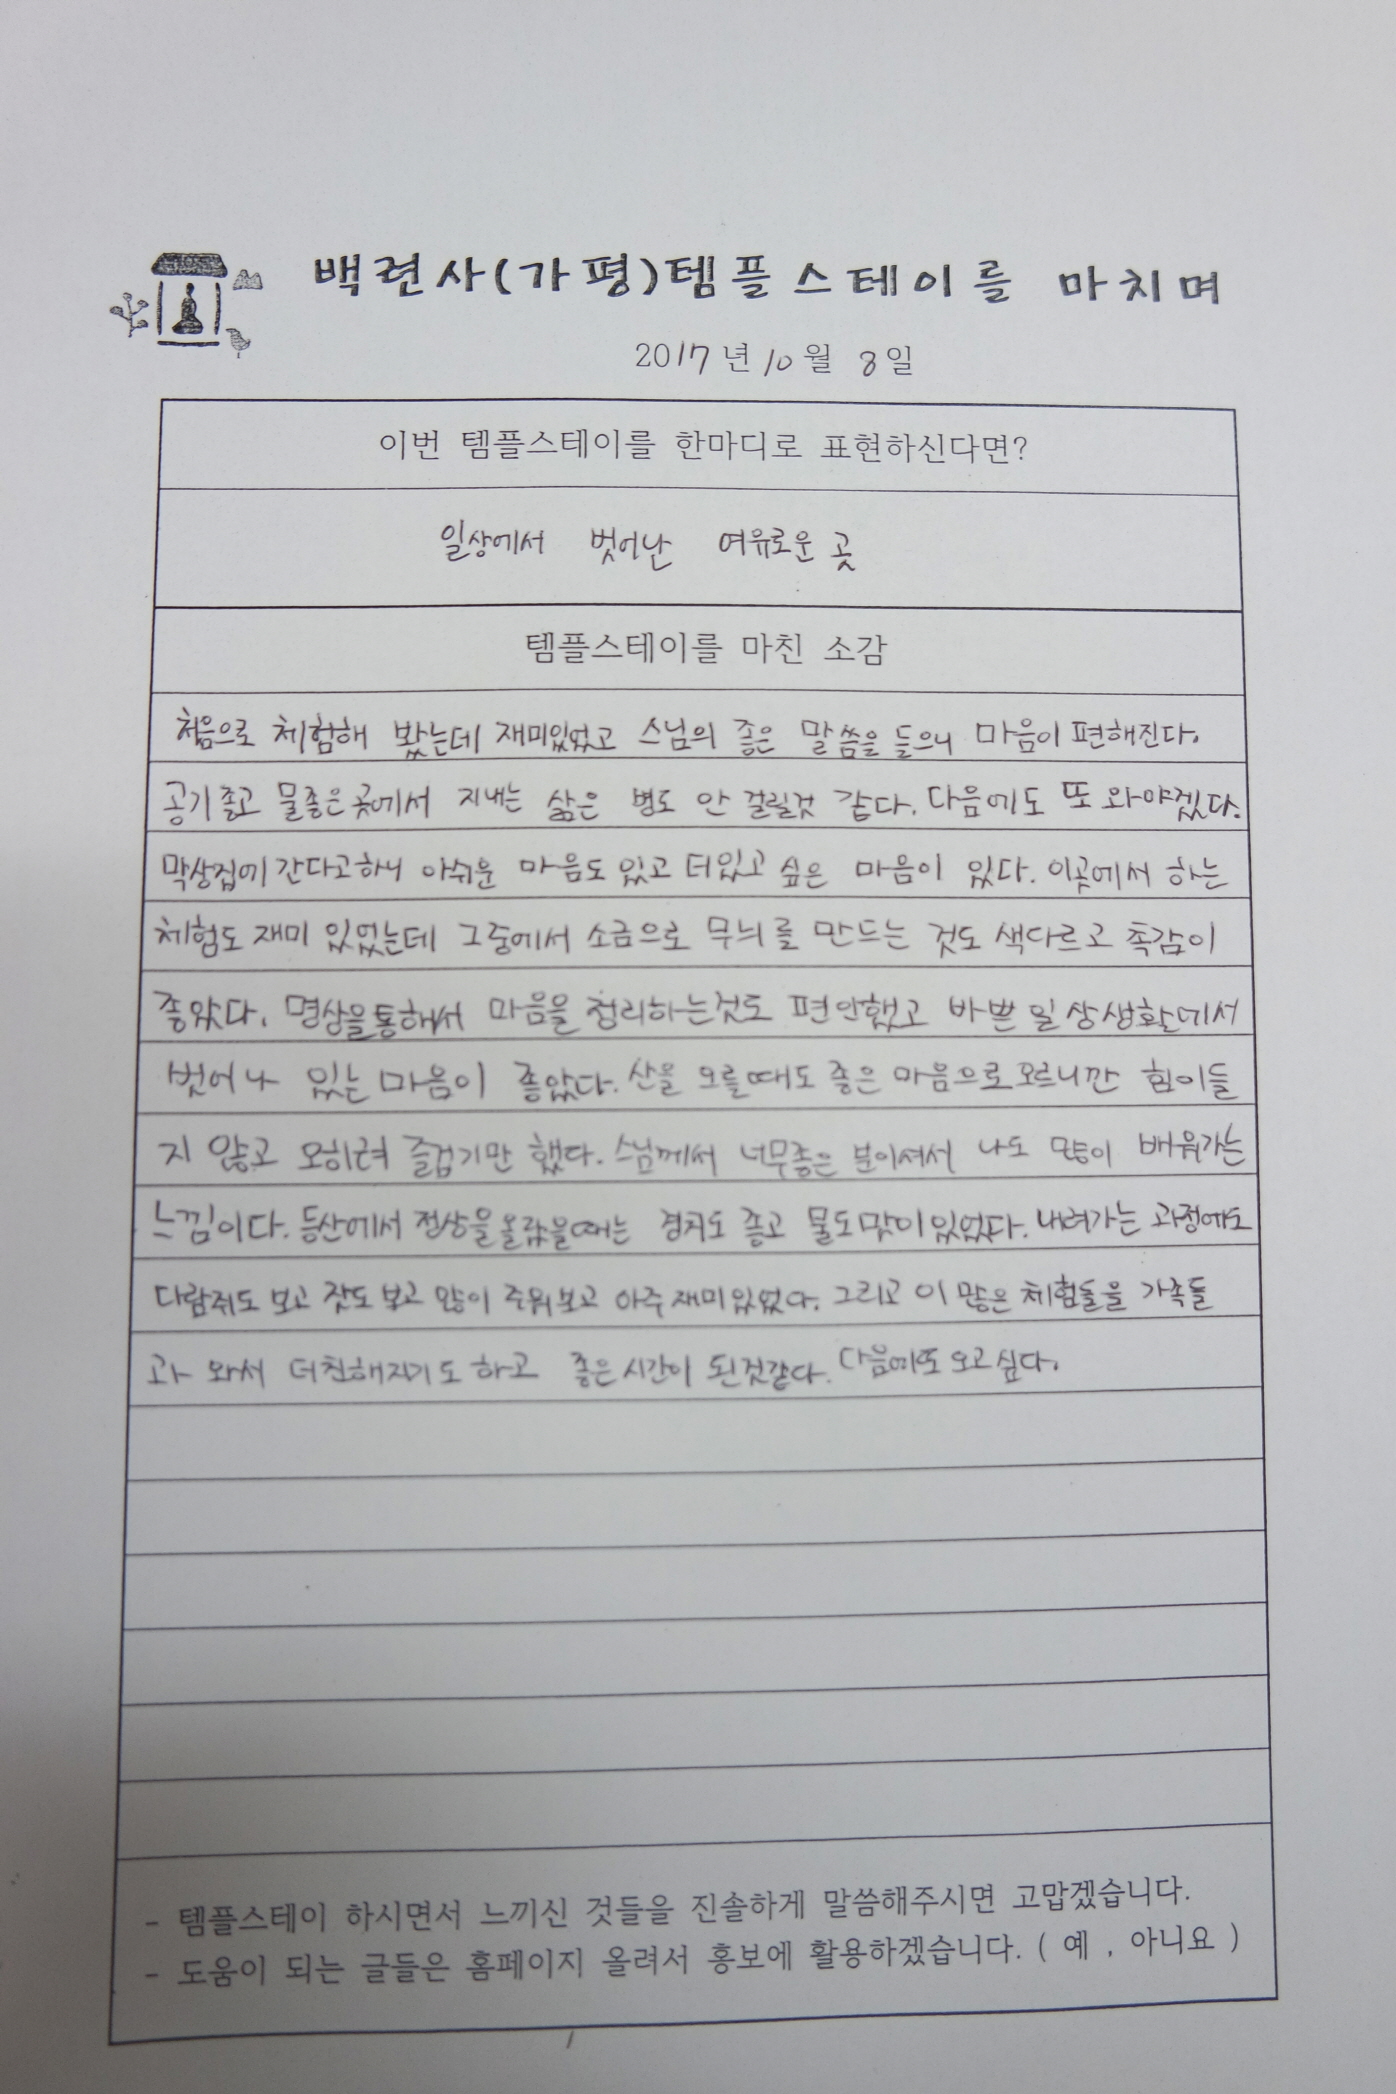 백련사(가평)템플스테이를 마치며
2017년 10월 8일
이번 템플스테이를 한마디로 표현하신다면?
일상에서 벗어난 여유로운 곳
템플스테이를 마친 소감
처음으로 체험해 봤는데 재미있었고 스님의 좋은 말씀을 들으니 마음이 편해진다.
공기좋고 물좋은 곳에서 지내는 삶은 병도 안 걸릴것 같다. 다음에도 또 와야겠다.
막상집에 간다고하니 아쉬운 마음도 있고 더있고 싶은 마음이 있다. 이곳에서 하는
체험도 재미 있었는데 그중에서 소금으로 무늬를 만드는 것도 색다르고 촉감이
좋았다. 명상을통해서 마음을 정리하는것도 편안했고 바쁜 일상생활에서
벗어나 있는 마음이 좋았다. 산을 오를때도 좋은 마음으로 오르니깐 힘이들
지 않고 오히려 즐겁기만 했다. 스님께서 너무좋은 분이셔서 나도 많이 배워가는
느낌이다. 등산에서 정상을올랐을때는 경치도 좋고 물도맛이있었다. 내려가는 과정에도
다람쥐도 보고 잣도 보고 많이 주워보고 아주 재미있었다. 그리고 이 많은 체험들을 가족들
과 와서 더친해지기도 하고 좋은 시간이 된것같다. 다음에또 오고싶다.
- 템플스테이 하시면서 느끼신 것들을 진솔하게 말씀해주시면 고맙겠습니다.
- 도움이 되는 글들은 홈페이지 올려서 홍보에 활용하겠습니다. ( 예 , 아니요 )